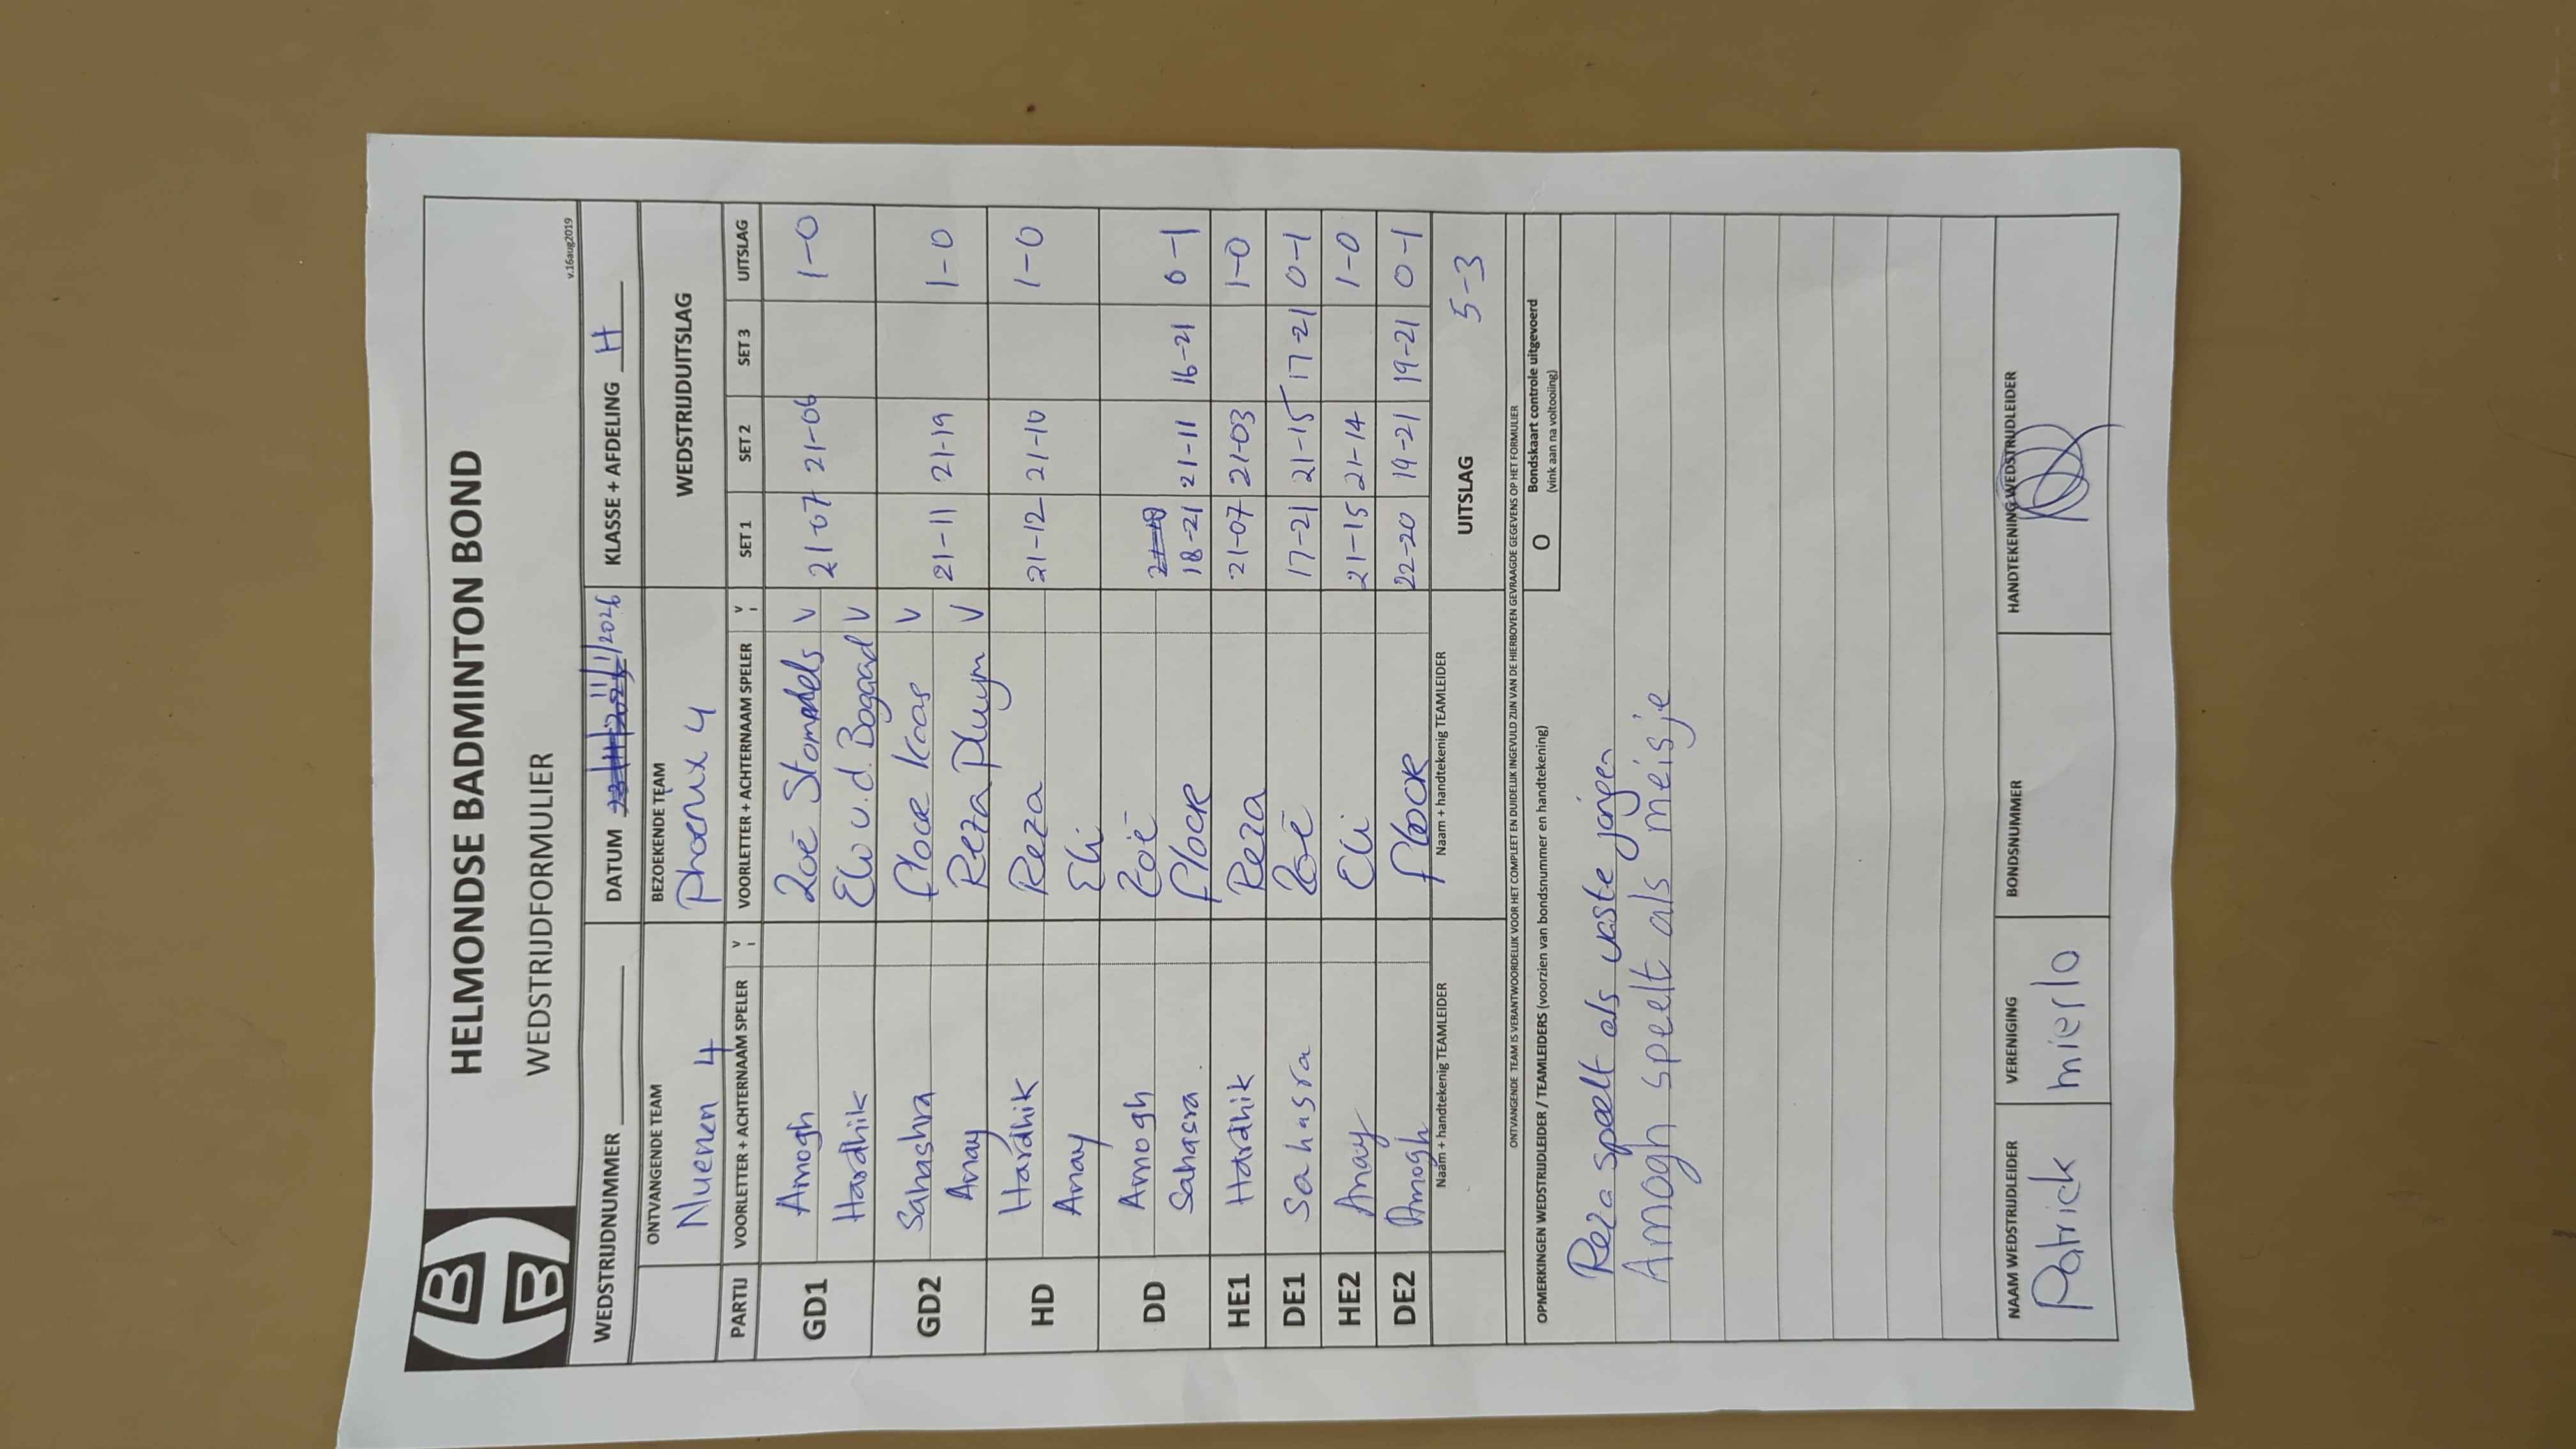 HELMONDSE BADMINTON BOND
WEDSTRIJDFORMULIER
v.16aug2019
WEDSTRIJDNUMMER DATUM 11/1/2026 KLASSE + AFDELING H
ONTVANGENDE TEAM BEZOEKENDE TEAM WEDSTRIJDUITSLAG
Nuenen 4 Phoenix 4
PARTIJ VOORLETTER + ACHTERNAAM SPELER V VOORLETTER + ACHTERNAAM SPELER V SET 1 SET 2 SET 3 UITSLAG
GD1 Amogh Zoë Stompels V 21-07 21-06 1-0
Hardhik Eli v.d. Bogaad V
GD2 Sahashra Floor Kaas V 21-11 21-19 1-0
Anay Reza Pluym V
HD Hardhik Reza 21-12 21-10 1-0
Anay Eli
DD Amogh Zoë
Sahasra Floor 18-21 21-11 16-21 0-1
HE1 Hardhik Reza 21-07 21-03 1-0
DE1 Sahasra Zoë 17-21 21-15 17-21 0-1
HE2 Anay Eli 21-15 21-14 1-0
DE2 Amogh Floor 22-20 19-21 19-21 0-1
Naam + handtekenig TEAMLEIDER Naam + handtekenig TEAMLEIDER UITSLAG 5-3
ONTVANGENDE TEAM IS VERANTWOORDELIJK VOOR HET COMPLEET EN DUIDELIJK INGEVULD ZIJN VAN DE HIERBOVEN GEVRAAGDE GEGEVENS OP HET FORMULIER
OPMERKINGEN WEDSTRIJDLEIDER / TEAMLEIDERS (voorzien van bondsnummer en handtekening) O Bondskaart controle uitgevoerd
(vink aan na voltooiing)
Reza speelt als vaste jongen
Amogh speelt als meisje
NAAM WEDSTRIJDLEIDER VERENIGING BONDSNUMMER HANDTEKENING WEDSTRIJDLEIDER
Patrick mierlo